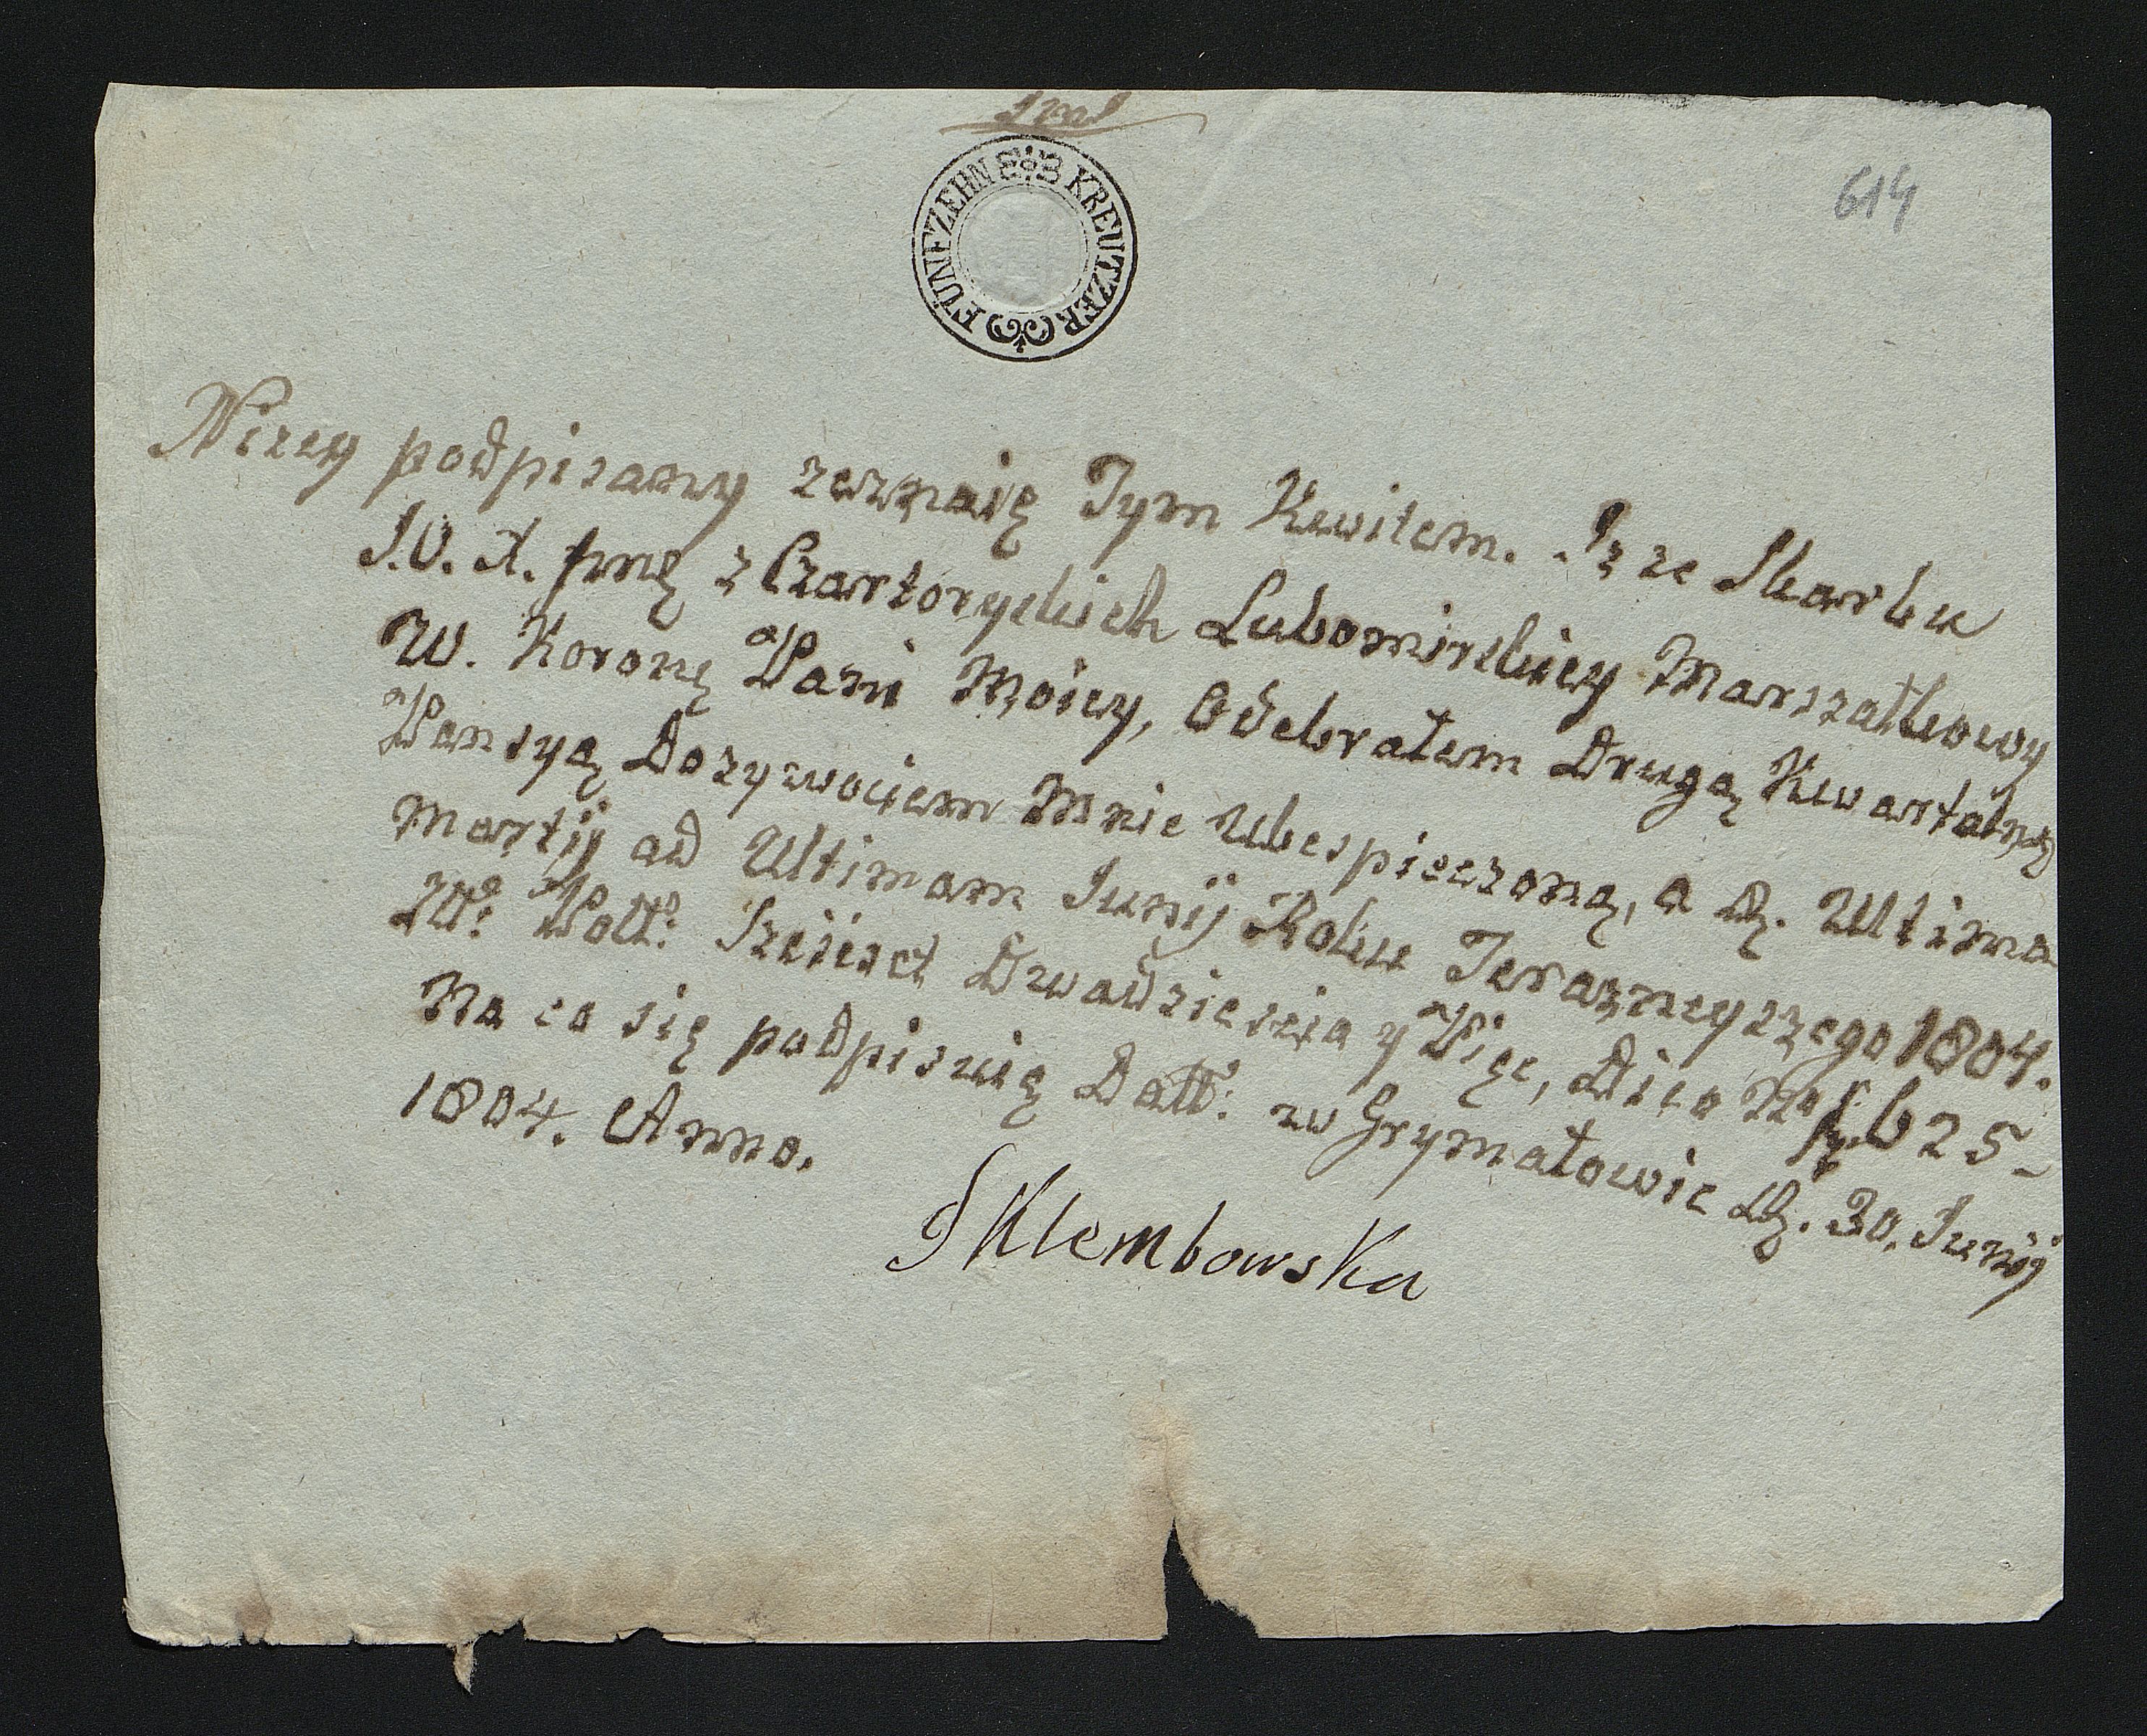 614
FÜNFZEHN KREUTZER
Nizey podpisany zeznaię Tym Kwitem. Iz ze Skarbu
J.O. X. z Czartoryskich Lubomirskiey Marszałkowy
W. Koronę Pani Moiey, Odebrałem Drugą Kwartalną
Pensyą Dozywociem Mnie Ubespieczoną, a D. Ultima
Martij ad Ultimam Junij Roku Teraznyszego 1804.
Zło: Poll: Sześćset Dwadzieścia y Pięc, Dico No f. 625-
Na co się podpisuię Datt: w Grymałowie D. 30. Junij
1804. Anno.
Klembowska